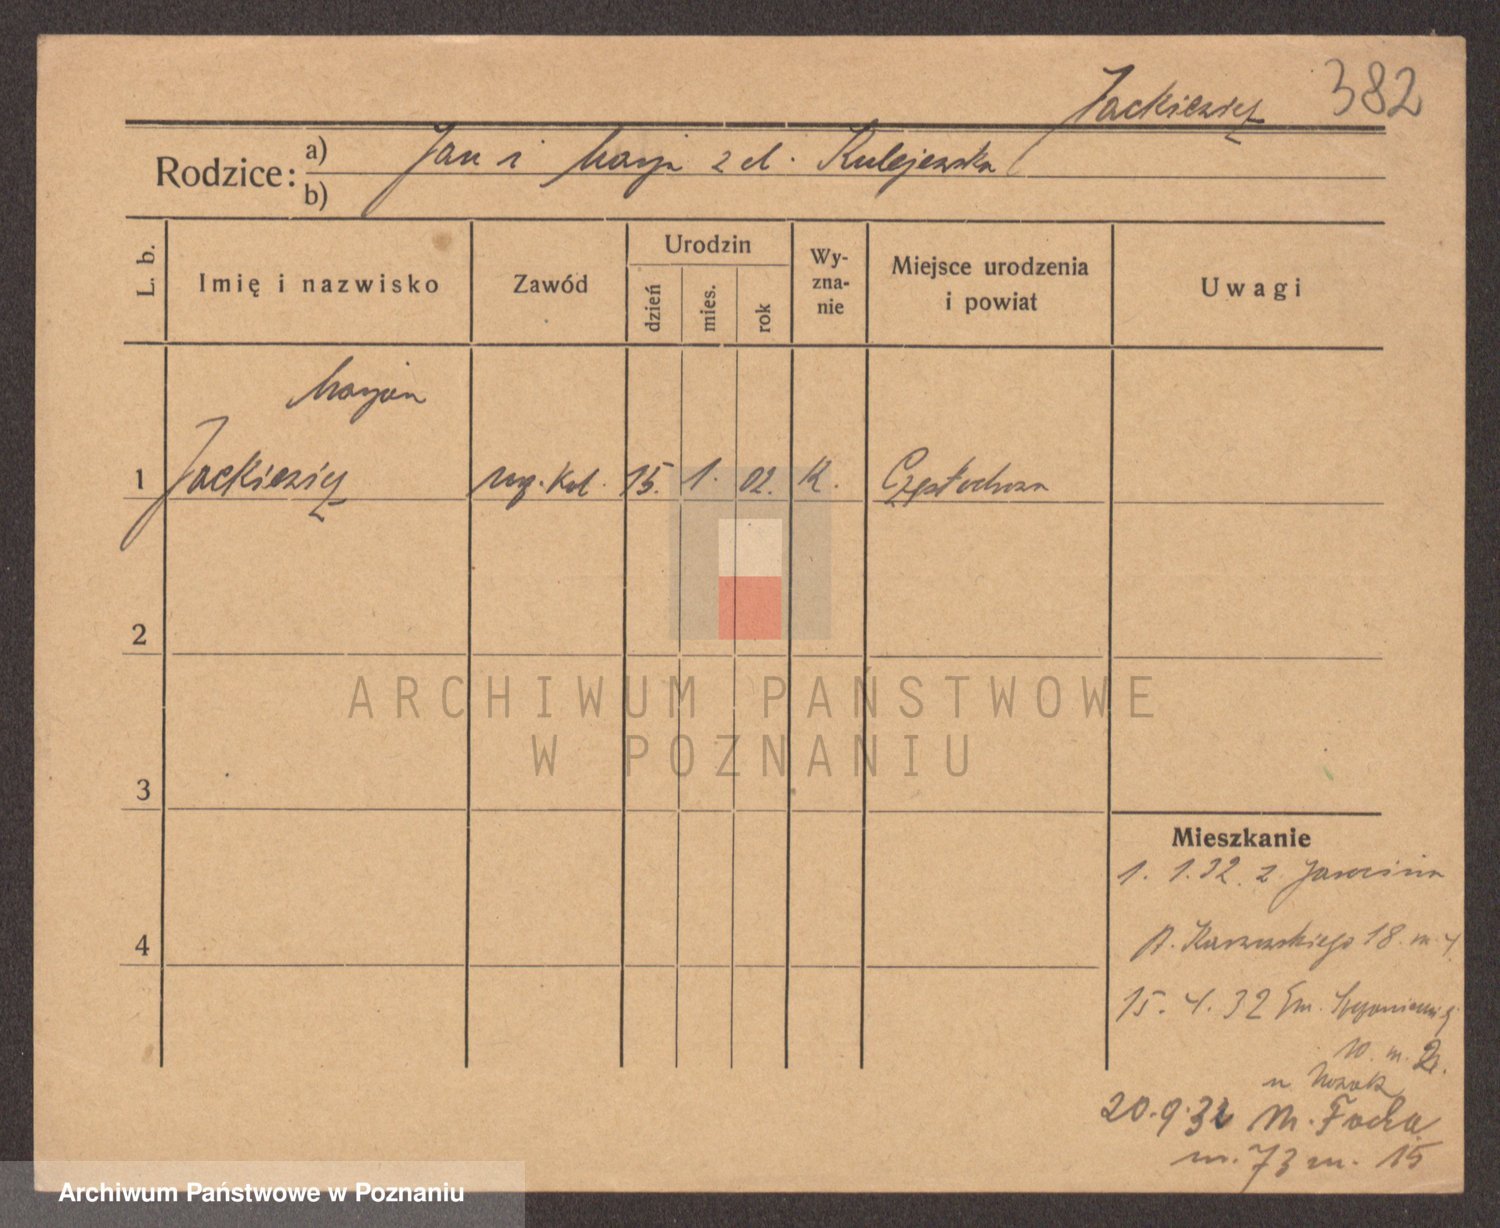 Jackiewicz 382
Rodzice: a) Jan i Marja z d. Kulejewska
b)
L. b. Imię i nazwisko Zawód Urodzin dzień mies. rok Wy-zna-nie Miejsce urodzenia i powiat Uwagi
Marjan
1 Jackiewicz urz. kol. 15. 1. 02. K. Częstochowa
2
ARCHIWUM PAŃSTWOWE
W POZNANIU
3
Mieszkanie
1. 1. 32 z Jarocina
4
18 m. 4
15. 4. 32 Em.
10 m. 2.
u Nowak
20.9.32 M. Focha
73 m. 15
Archiwum Państwowe w Poznaniu